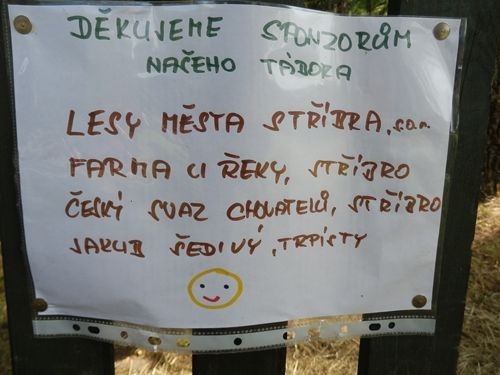 DĚKUJEME SPONZORŮM
NAČEHO TÁBORA
LESY MĚSTA STŘÍBRA, s.r.o.
FARMA U ŘEKY, STŘÍBRO
ČESKÝ SVAZ CHOVATELŮ, STŘÍBRO
JAKUB ŠEDIVÝ, TRPÍSTY